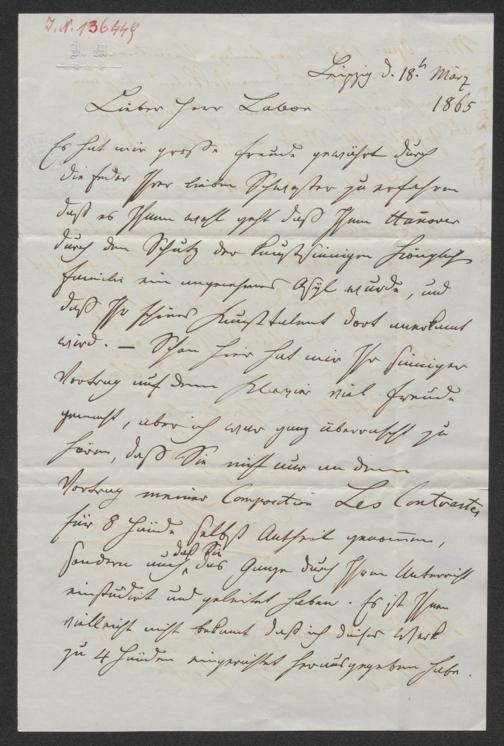 I.N. 136449
Leipzig d. 18.ᵗ März
1865
Lieber Herr Labor
Es hat mir große Freude gewährt durch
die Feder Ihrer lieben Schwester zu erfahren
daß es Ihnen wohl geht daß Ihnen Hanover
durch den Schutz der kunstsinnigen Königlich
Familie ein angenehmes Asyl wurde, und
daß Ihr schönes Kunsttalent dort anerkannt
wird. — Schon hier hat mir Ihr sinniger
Vortrag auf dem Klavier viel Freude
gemacht, aber ich war ganz überrascht zu
hören, daß Sie nicht nur an dem
Vortrag meiner Composition Les Contrastes
für 8 Hände selbst Antheil genommen,
sondern auch daß Sie das Ganze durch Ihren Unterricht
einstudirt und geleitet haben. Es ist Ihnen
vielleicht nicht bekannt daß ich dieses Werk
zu 4 Händen eingerichtet herausgegeben habe.